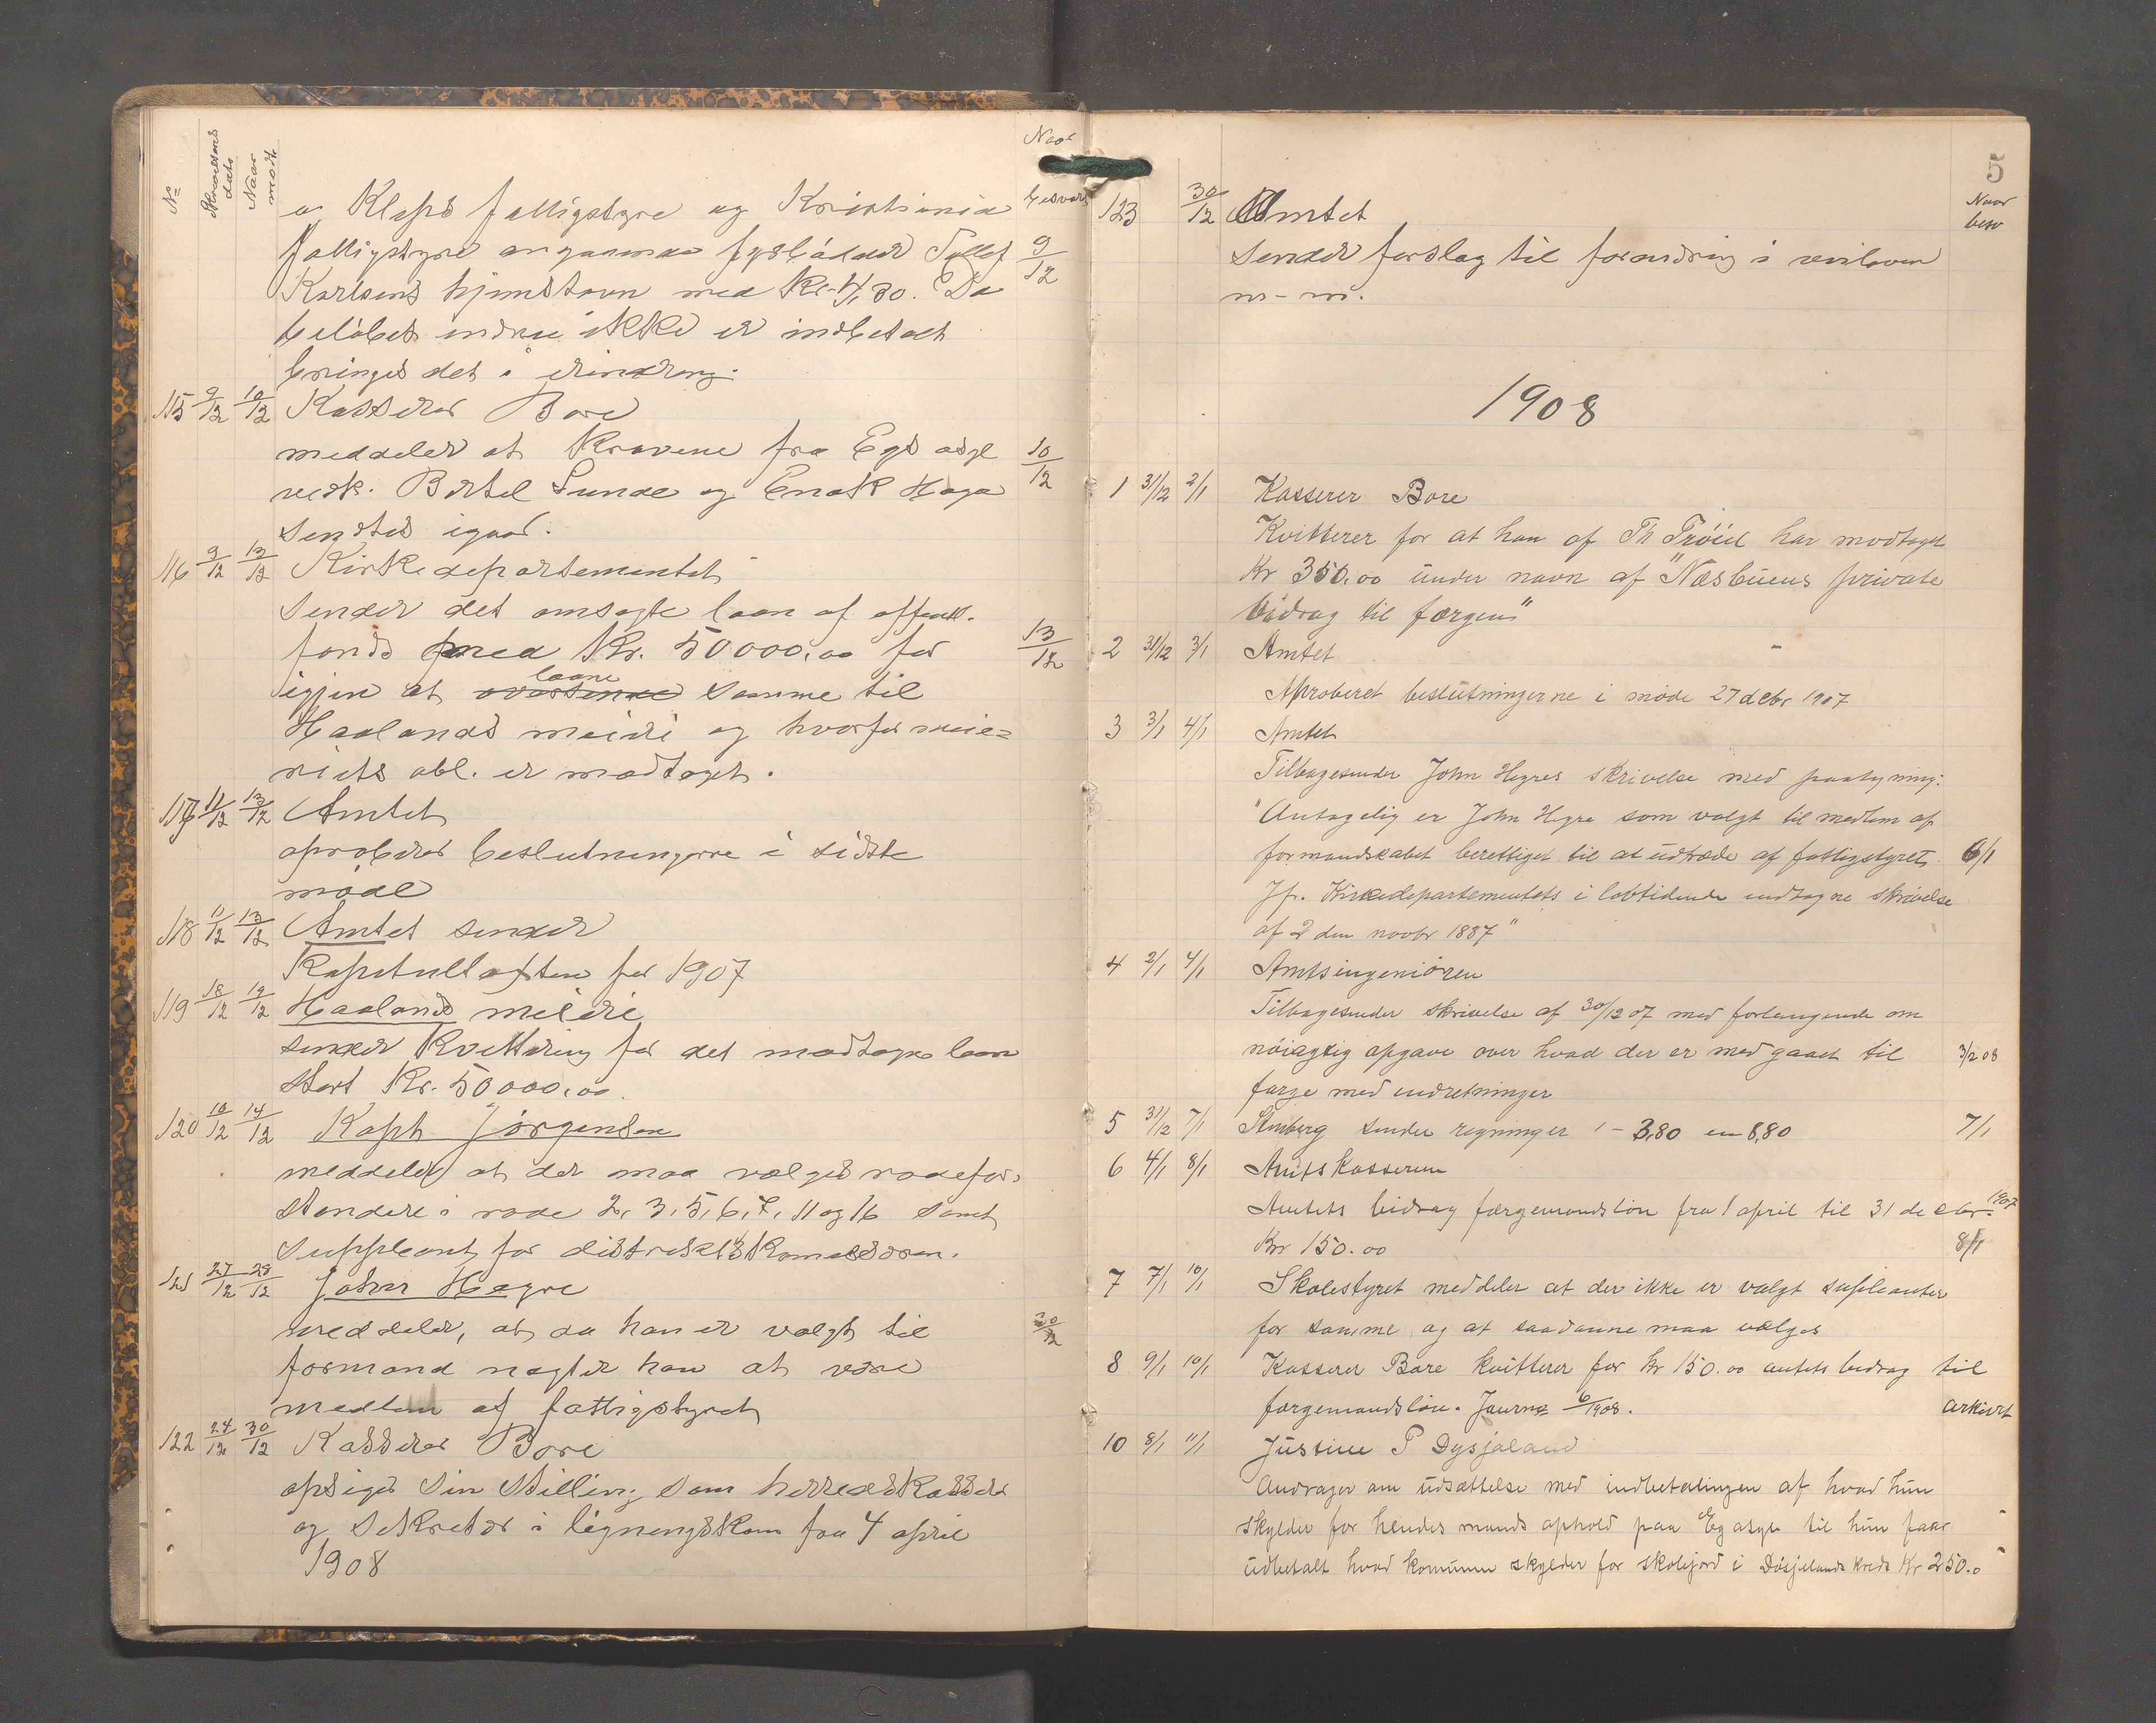 No Skrivelsens dato Naar modt Naar besvart
og Kleps fattigstyre og Kristiania
fattigstyre angaaende Tollef 9/12
Karlsens hjemstavn med Kr 4,30. Da
beløbet endnu ikke er indbetalt
bringes det i erindring.
115 9/12 10/12 Kasserer Bore
meddeler at Kravene fra Egs asyl 10/12
vedk. Bertel Sunde og Enok Haga
sendtes igaar.
116 9/12 13/12 Kirkedepartementet
sender det omsøgte laan af offentl.
fonds med Kr. 50000,00 for 13/12
igjen at oversende laane samme til
Haalands meieri og hvorfor meie=
riets obl. er modtaget.
117 11/12 13/12 Amtet
aproberer beslutningerne i sidste
møde
118 11/12 13/12 Amtet sender
Kapitultaxten for 1907
119 18/12 19/12 Haalands meieri
sender Kvittering for det modtagne laan
stort Kr. 50000,00.
120 10/12 14/12 Kapt Jørgensen
meddeler at der maa vælges rodefor=
standere i rode 2, 3, 5, 6, 7, 11 og 16 samt
suppleant for distriktskomissæren.
121 27/12 28/12 John Hegre
meddeler, at da han er valgt til 30/12
formand nægter han at være
medlem af fattigstyret
122 24/12 30/12 Kasserer Bore
opsiger sin stilling som herredskasserer
og sekretær i ligningskom fra 4 april
1908
5
Naar besv
123 30/12 Amtet
sender forslag til forandring i veiloven
m-m.
1908
1 31/12 2/1 Kasserer Bore
Kvitterer for at han af Th Trøiel har modtaget
Kr 350,00 under navn af "Næsbuens private
bidrag til færgen"
2 31/12 3/1 Amtet
Aproberet beslutningerne i møde 27 decbr 1907
3 3/1 4/1 Amtet
Tilbagesender John Hegres skrivelse med paategning:
"Antagelig er John Hegre som valgt til medlem af
formandskabet berettiget til at udtræde af fattigstyret. 6/1
Jfr. Kirkedepartementets i lovtidende indtagne skrivelse
af 2 den novbr 1887"
4 2/1 4/1 Amtsingeniøren
Tilbagesender skrivelse af 30/12 07 med forlangende om
nøiagtig opgave over hvad der er medgaaet til 3/2 08
færge med indretninger
5 31/12 7/1 Stenberg sender regninger 1 - 3,80 en 8,80 7/1
6 4/1 8/1 Amtskassereren
Amtets bidrag færgemandsløn fra 1 april til 31 decbr. 1907
Kr 150.00 8/1
7 7/1 10/1 Skolestyret meddeler at der ikke er valgt supleanter
for samme og at saadanne maa vælges
8 9/1 10/1 Kasserer Bore kvitterer for kr 150.00 amtets bidrag til
færgemandsløn. Journ 6/1908. arkivrt
10 8/1 11/1 Justine P Dysjaland
Andrager om udsættelse med indbetalingen af hvad hun
skylder for hendes mands ophold paa Eg asyl til hun faar
udbetalt hvad komunen skylder for skolejord i Døsjelands kreds Kr 250.0